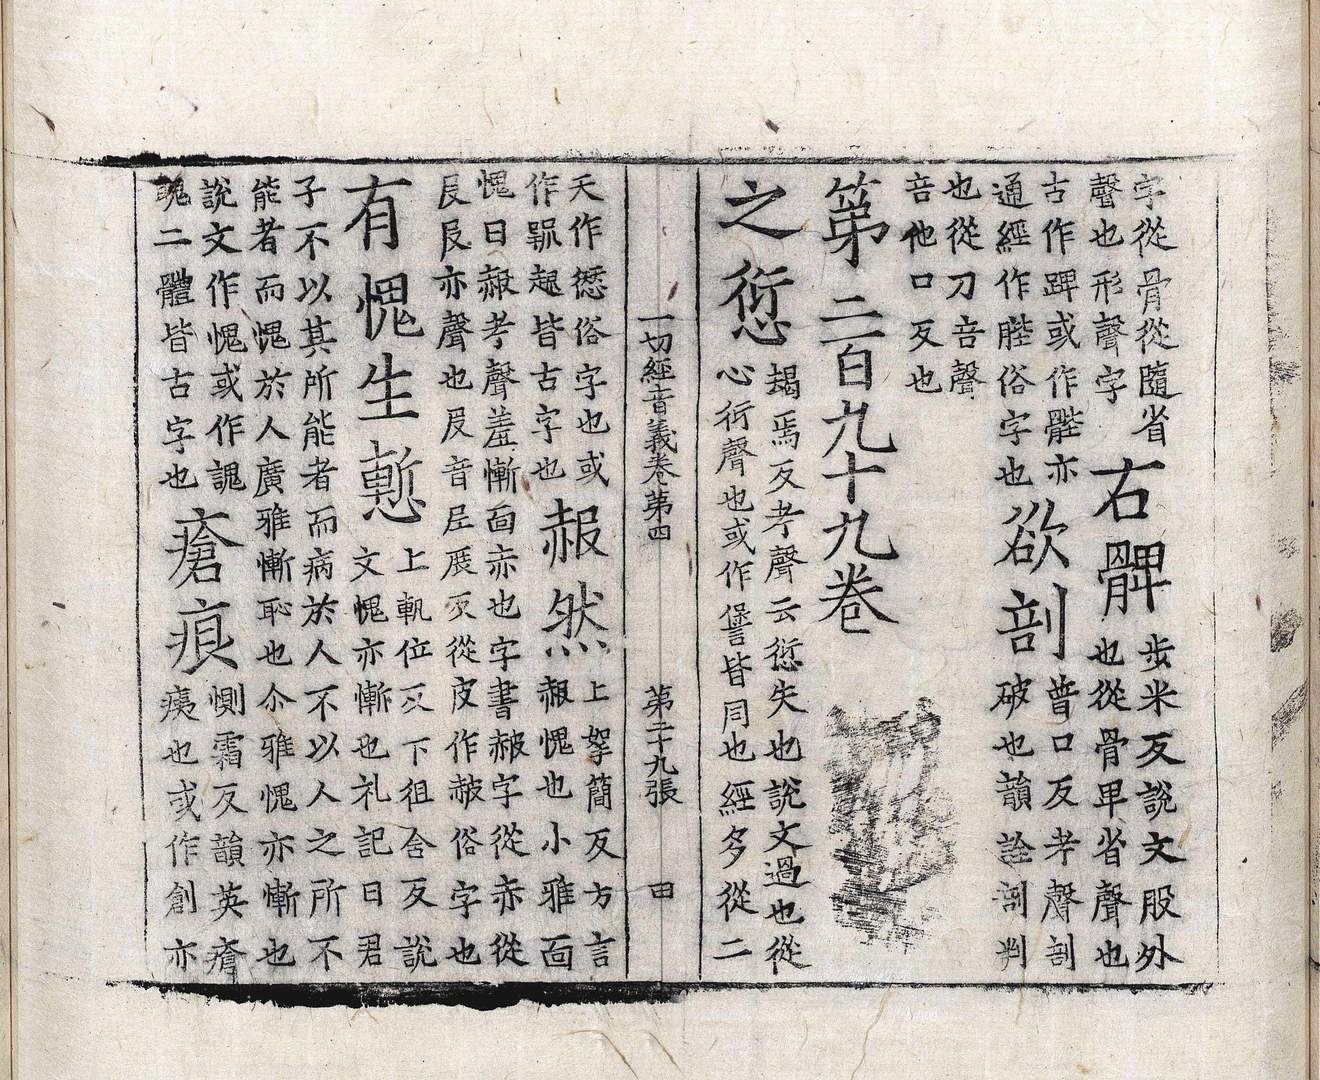 字從骨從隨省
聲也形聲字
右髀
步米反說文股外
也從骨卑省聲也
古作踔或作髀亦
通經作䏶俗字也
欲剖
普口反考聲剖
破也韻詮剖判
也從刀咅聲
咅他口反也
第二百九十九卷
之愆
朅焉反考聲云愆失也說文過也從
心衍聲也或作諐皆同也經多從二
一切經音義卷第四 第三十九張 田
天作愆俗字也或
作䇂䞿皆古字也
赧然
上拏簡反方言
赧愧也小雅面
愧曰赧考聲羞慚面亦也字書赧字從赤從
𠬝𠬝亦聲也𠬝音𡰥展反從皮作赦俗字也
有愧生慙
上軌位反下徂含反說
文愧亦慚也礼記曰君
子不以其所能者而病於人不以人之所不
能者而愧於人廣雅慚恥也尒雅愧亦慚也
說文作愧或作謉
䰟二體皆古字也
瘡痕
惻霜反韻英瘡
痍也或作創亦